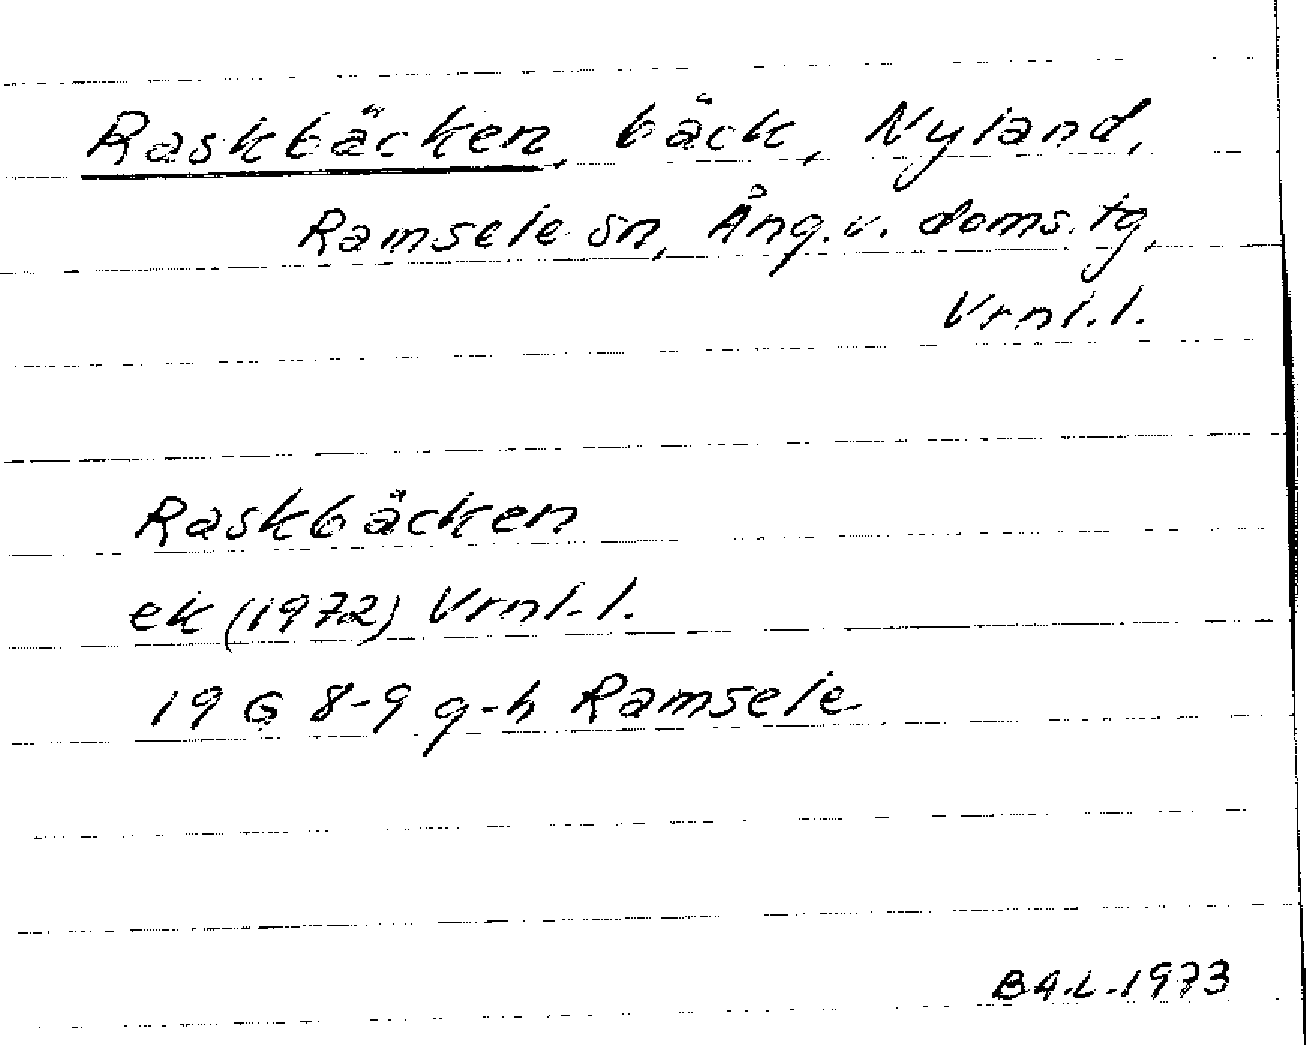 Raskbäcken, bäck, Nyland,
Ramsele sn, Ång.v. doms.tg,
Vrnl.l.
Raskbäcken
ek (1972) Vrnl.l.
19 G 8-9 g-h Ramsele
BA.L.1973